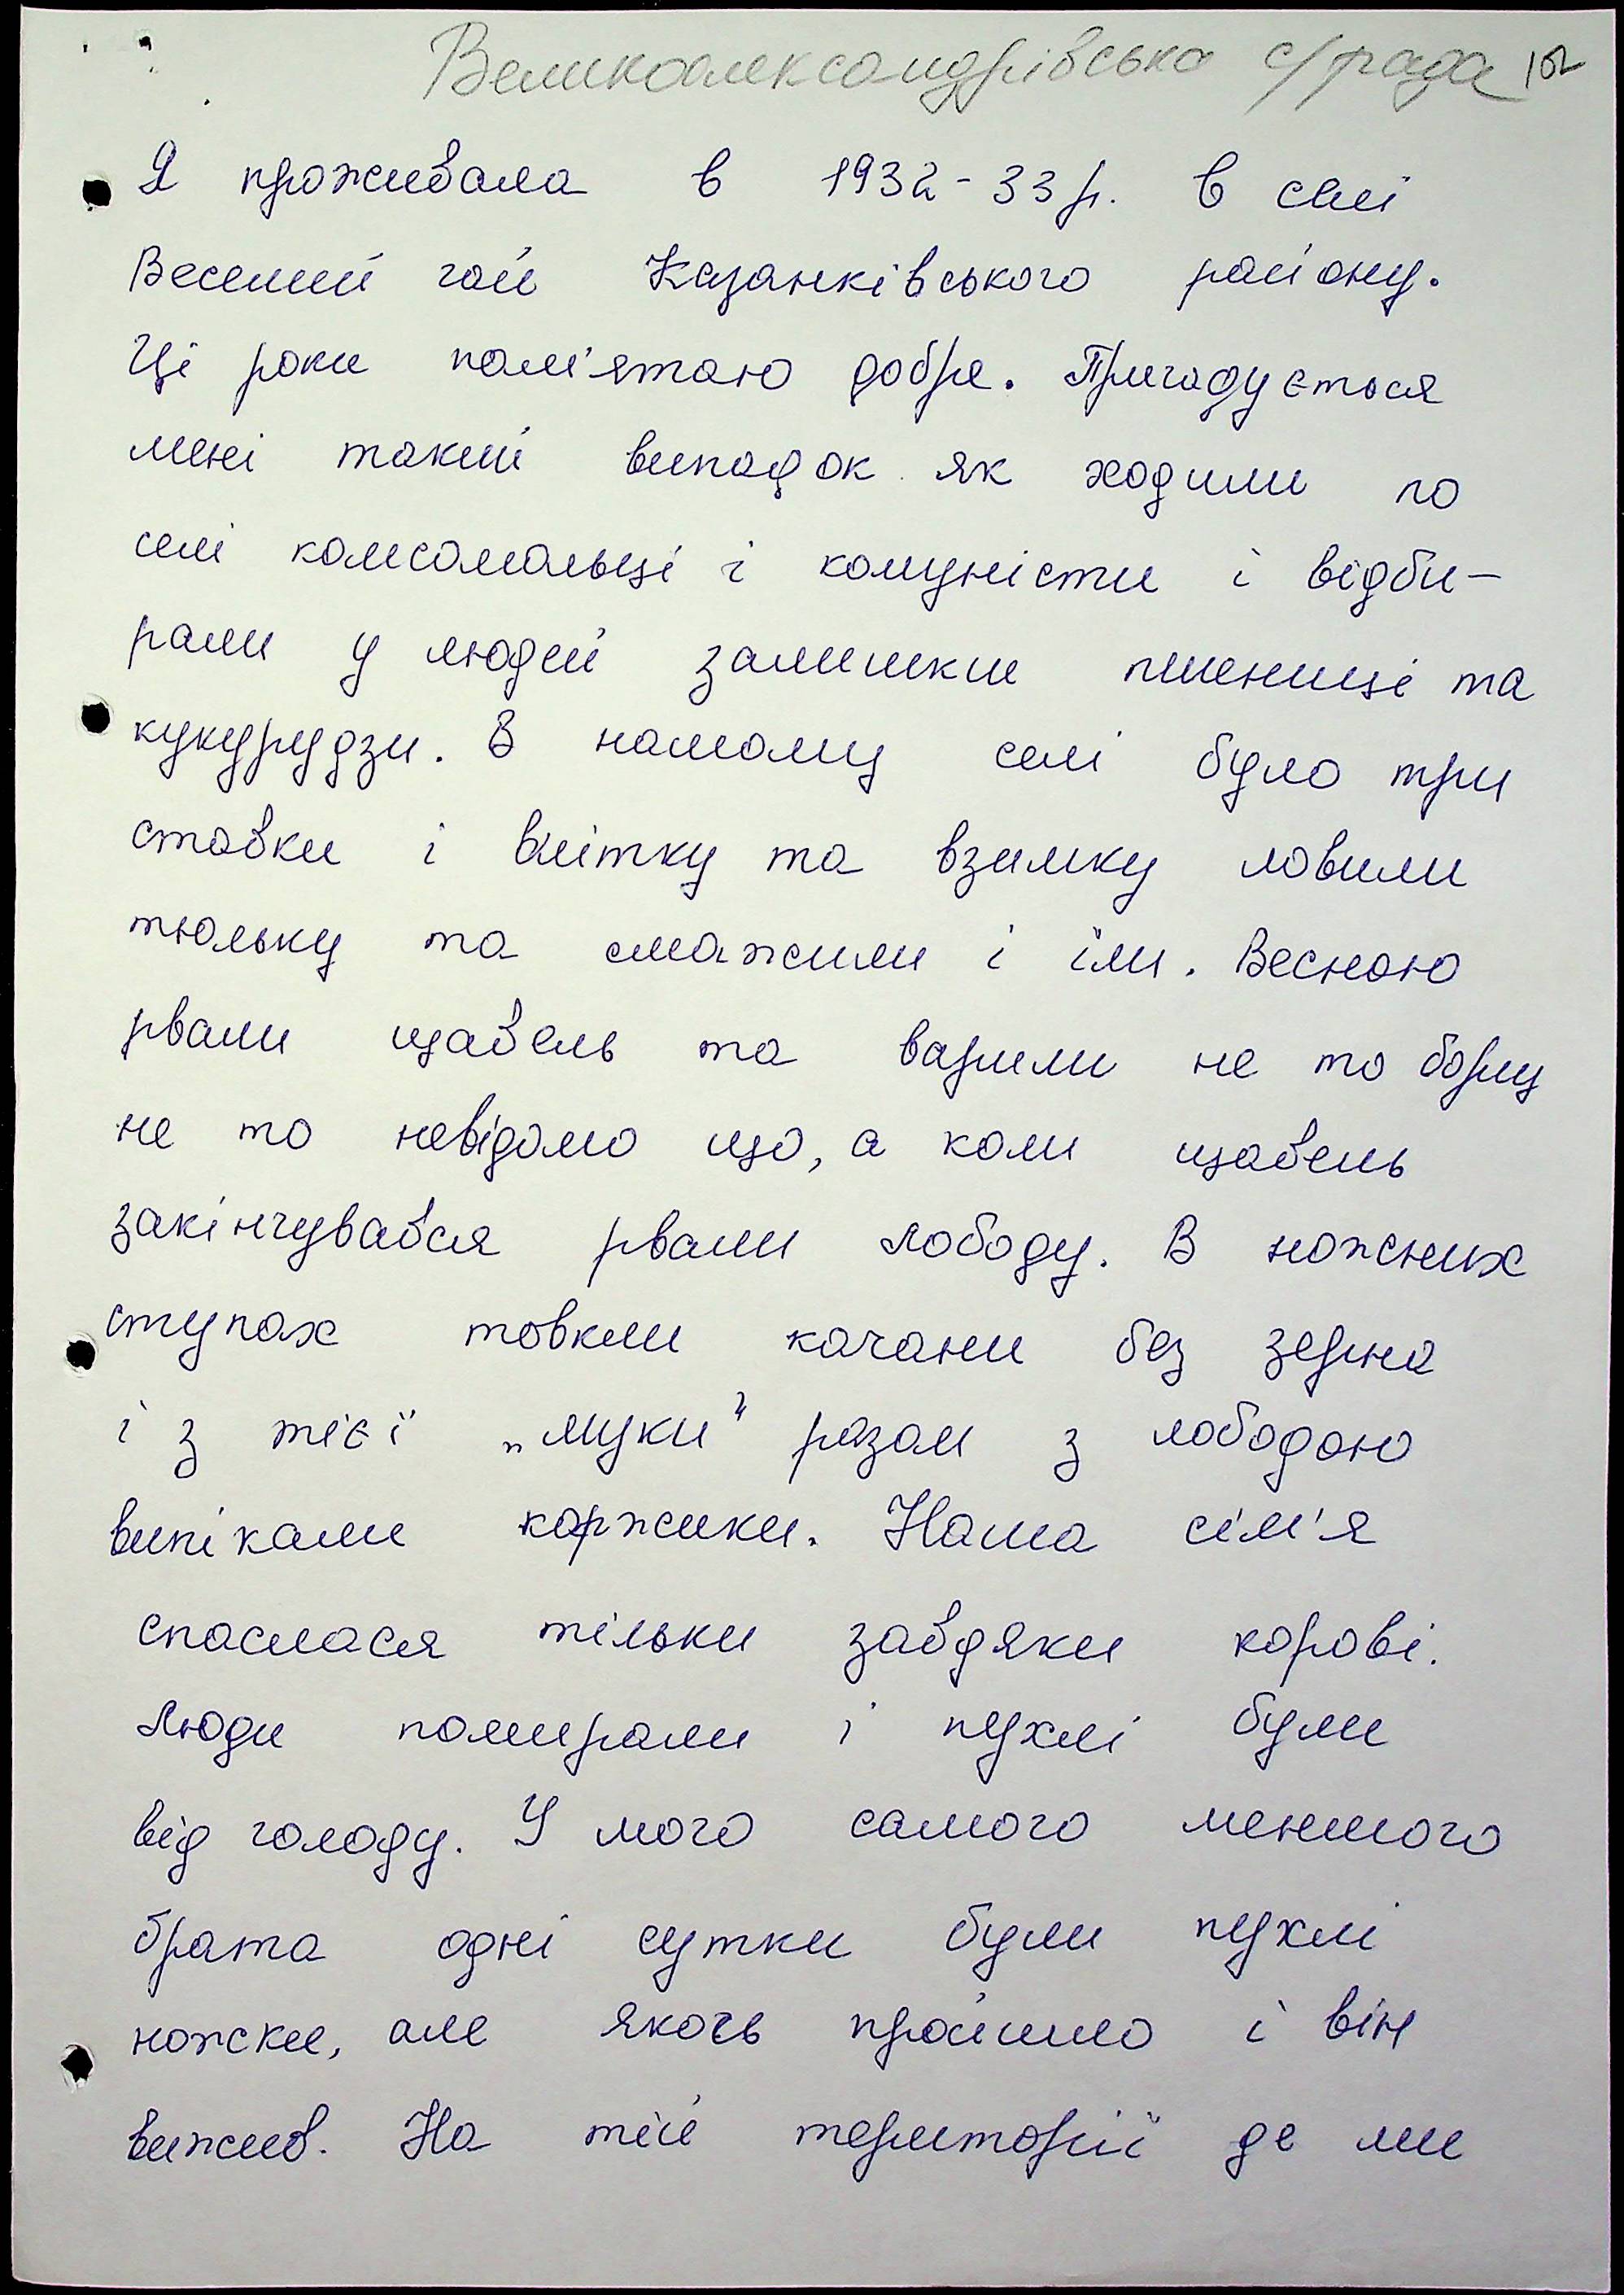 Великоолександрівська с/рада 102
Я проживала в 1932-33 р. в селі
Веселий гай Казанківського району.
Ці роки пам'ятаю добре. Пригадується
мені такий випадок як ходили по
селі комсомольці і комуністи і відби-
рали у людей залишки пшениці та
кукурудзи. В нашому селі було три
ставки і влітку та взимку ловили
тюльку та смажили і їли. Весною
рвали щавель та варили не то борщ
не то невідомо що, а коли щавель
закінчувався рвали лободу. В ножних
ступах товкли качани без зерна
і з тієї „муки" разом з лободою
випікали коржики. Наша сім'я
спаслася тільки завдяки корові.
Люди помирали і пухлі були
від голоду. У мого самого меншого
брата одні сутки були пухлі
ножки, але якось пройшло і він
вижив. На тій території де ми